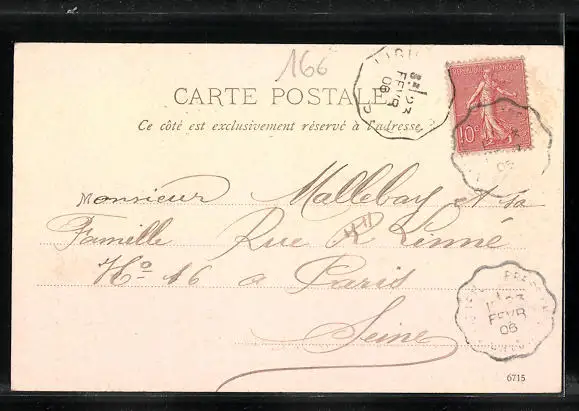 166
CARTE POSTALE
Ce côté est exclusivement réservé à l'adresse
10c
23
FEVR
06
Monsieur Mallebay et sa
Famille Rue Linné
No 16 a Paris
Seine
23
FEVR
06
6715